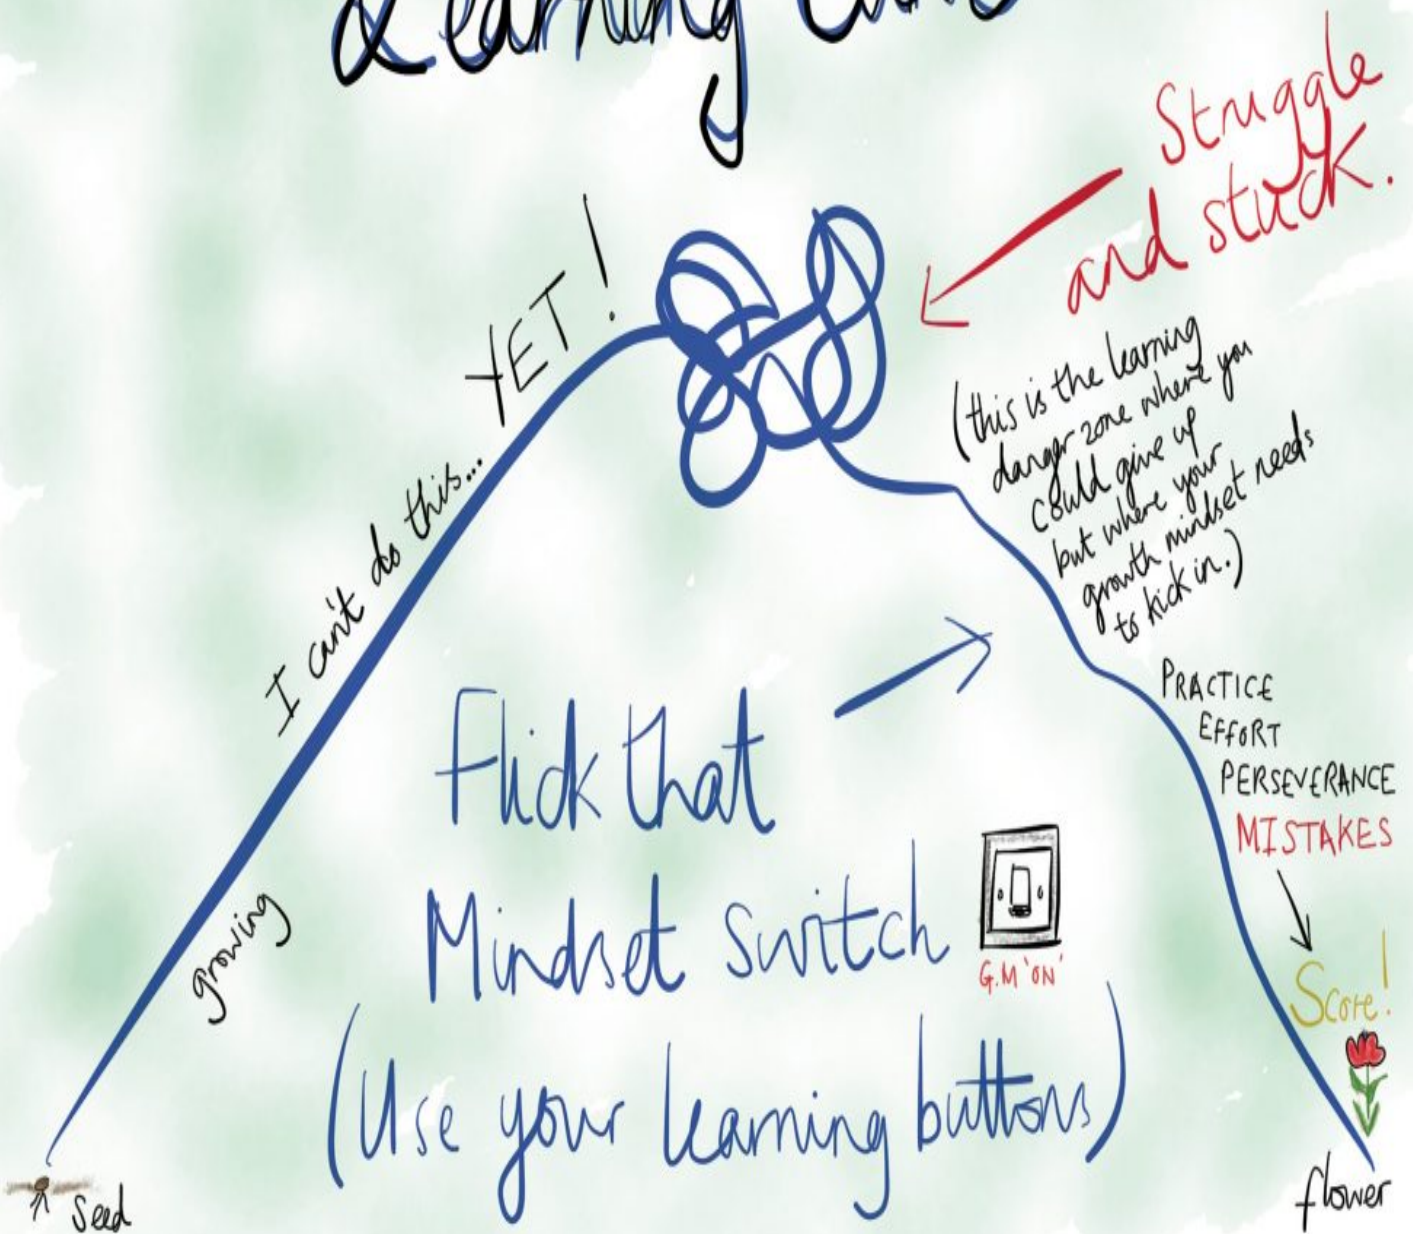 Learning
Struggle
and stuck.
YET!
I can't do this...
(this is the learning
danger zone where you
could give up
but where your
growth mindset needs
to kick in.)
PRACTICE
EFFORT
PERSEVERANCE
MISTAKES
Score!
Flick that
Mindset Switch
G.M 'ON'
(Use your learning buttons)
growing
seed
flower